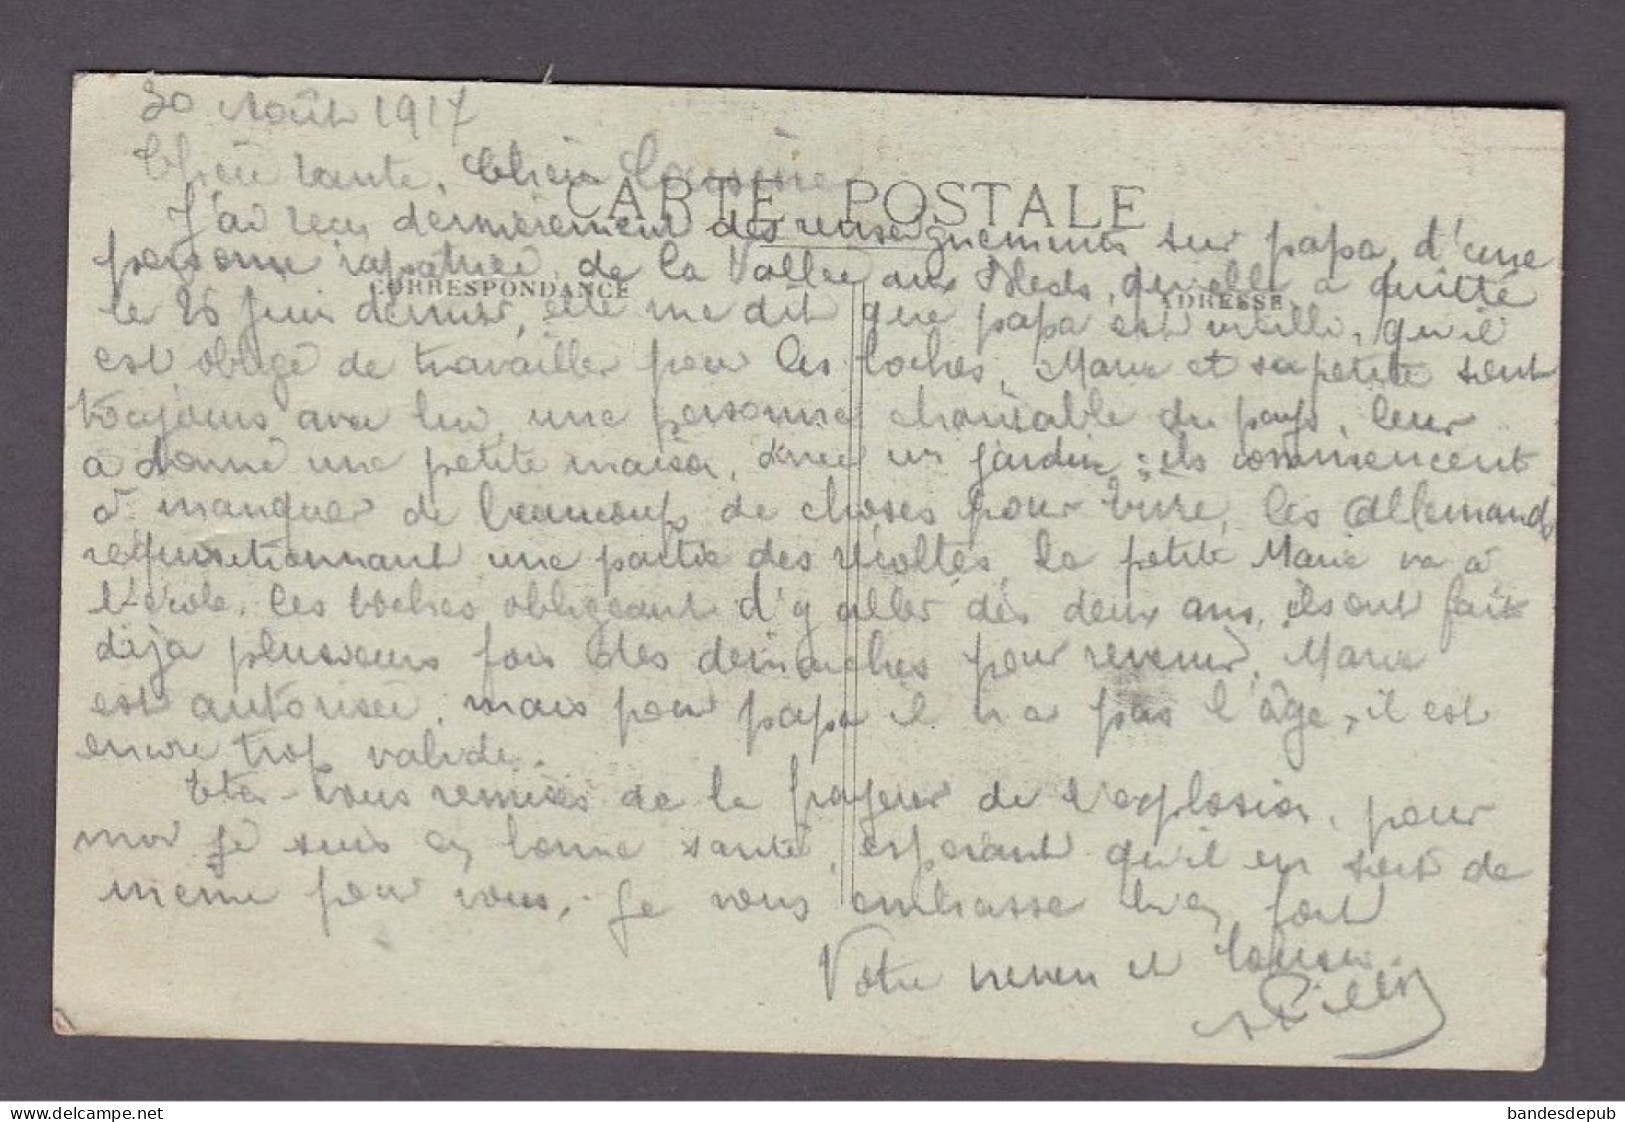 30 Août 1917
Chère tante, Chère Cousine
CARTE POSTALE
J'ai reçu dernièrement des renseignements sur papa, d'une
personne rapatriée, de la Vallée aux Bleds, qu'elle a quitté
CORRESPONDANCE
ADRESSE
le 26 Juin dernier, elle me dit que papa est vieilli, qu'il
est obligé de travailler pour les boches, Marie et sa petite sont
toujours avec lui, une personne charitable du pays, leur
a donné une petite maison, avec un jardin; ils commencent
à manquer de beaucoup de choses pour vivre, les Allemands
réquisitionnant une partie des récoltes, la petite Marie va à
l'école, les boches obligeant d'y aller dès deux ans, ils ont fait
déja plusieurs fois des démarches pour revenir, Marie
est autorisée, mais pour papa il n'a pas l'âge, il est
encore trop valide.
Etes-vous remises de la frayeur de l'explosion, pour
moi je suis en bonne santé, espérant qu'il en soit de
même pour vous, Je vous embrasse bien fort
Votre neveu et Cousin
bandesdepub